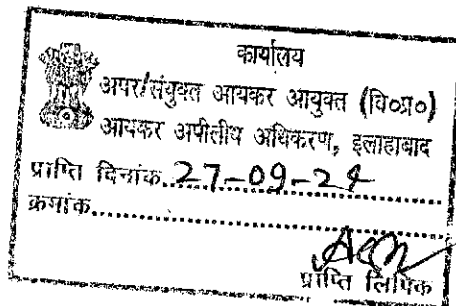 कार्यालय
अपर/संयुक्त आयकर आयुक्त (वि०प्र०)
आयकर अपीलीय अधिकरण, इलाहाबाद
प्राप्ति दिनांक..27-09-24
क्रमांक...............
प्राप्ति लिपिक